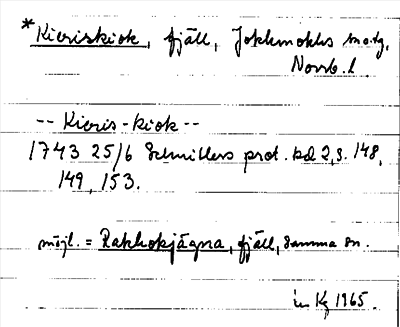 *Kieriskiok, fjäll, Jokkmokks
Norrb. l.
-- Kieris-kiok --
1743 25/6 Schnitlers prot. bd 2, s. 148,
149, 153.
möjl. = Rakkokjågna, fjäll, samma sn.
1965.